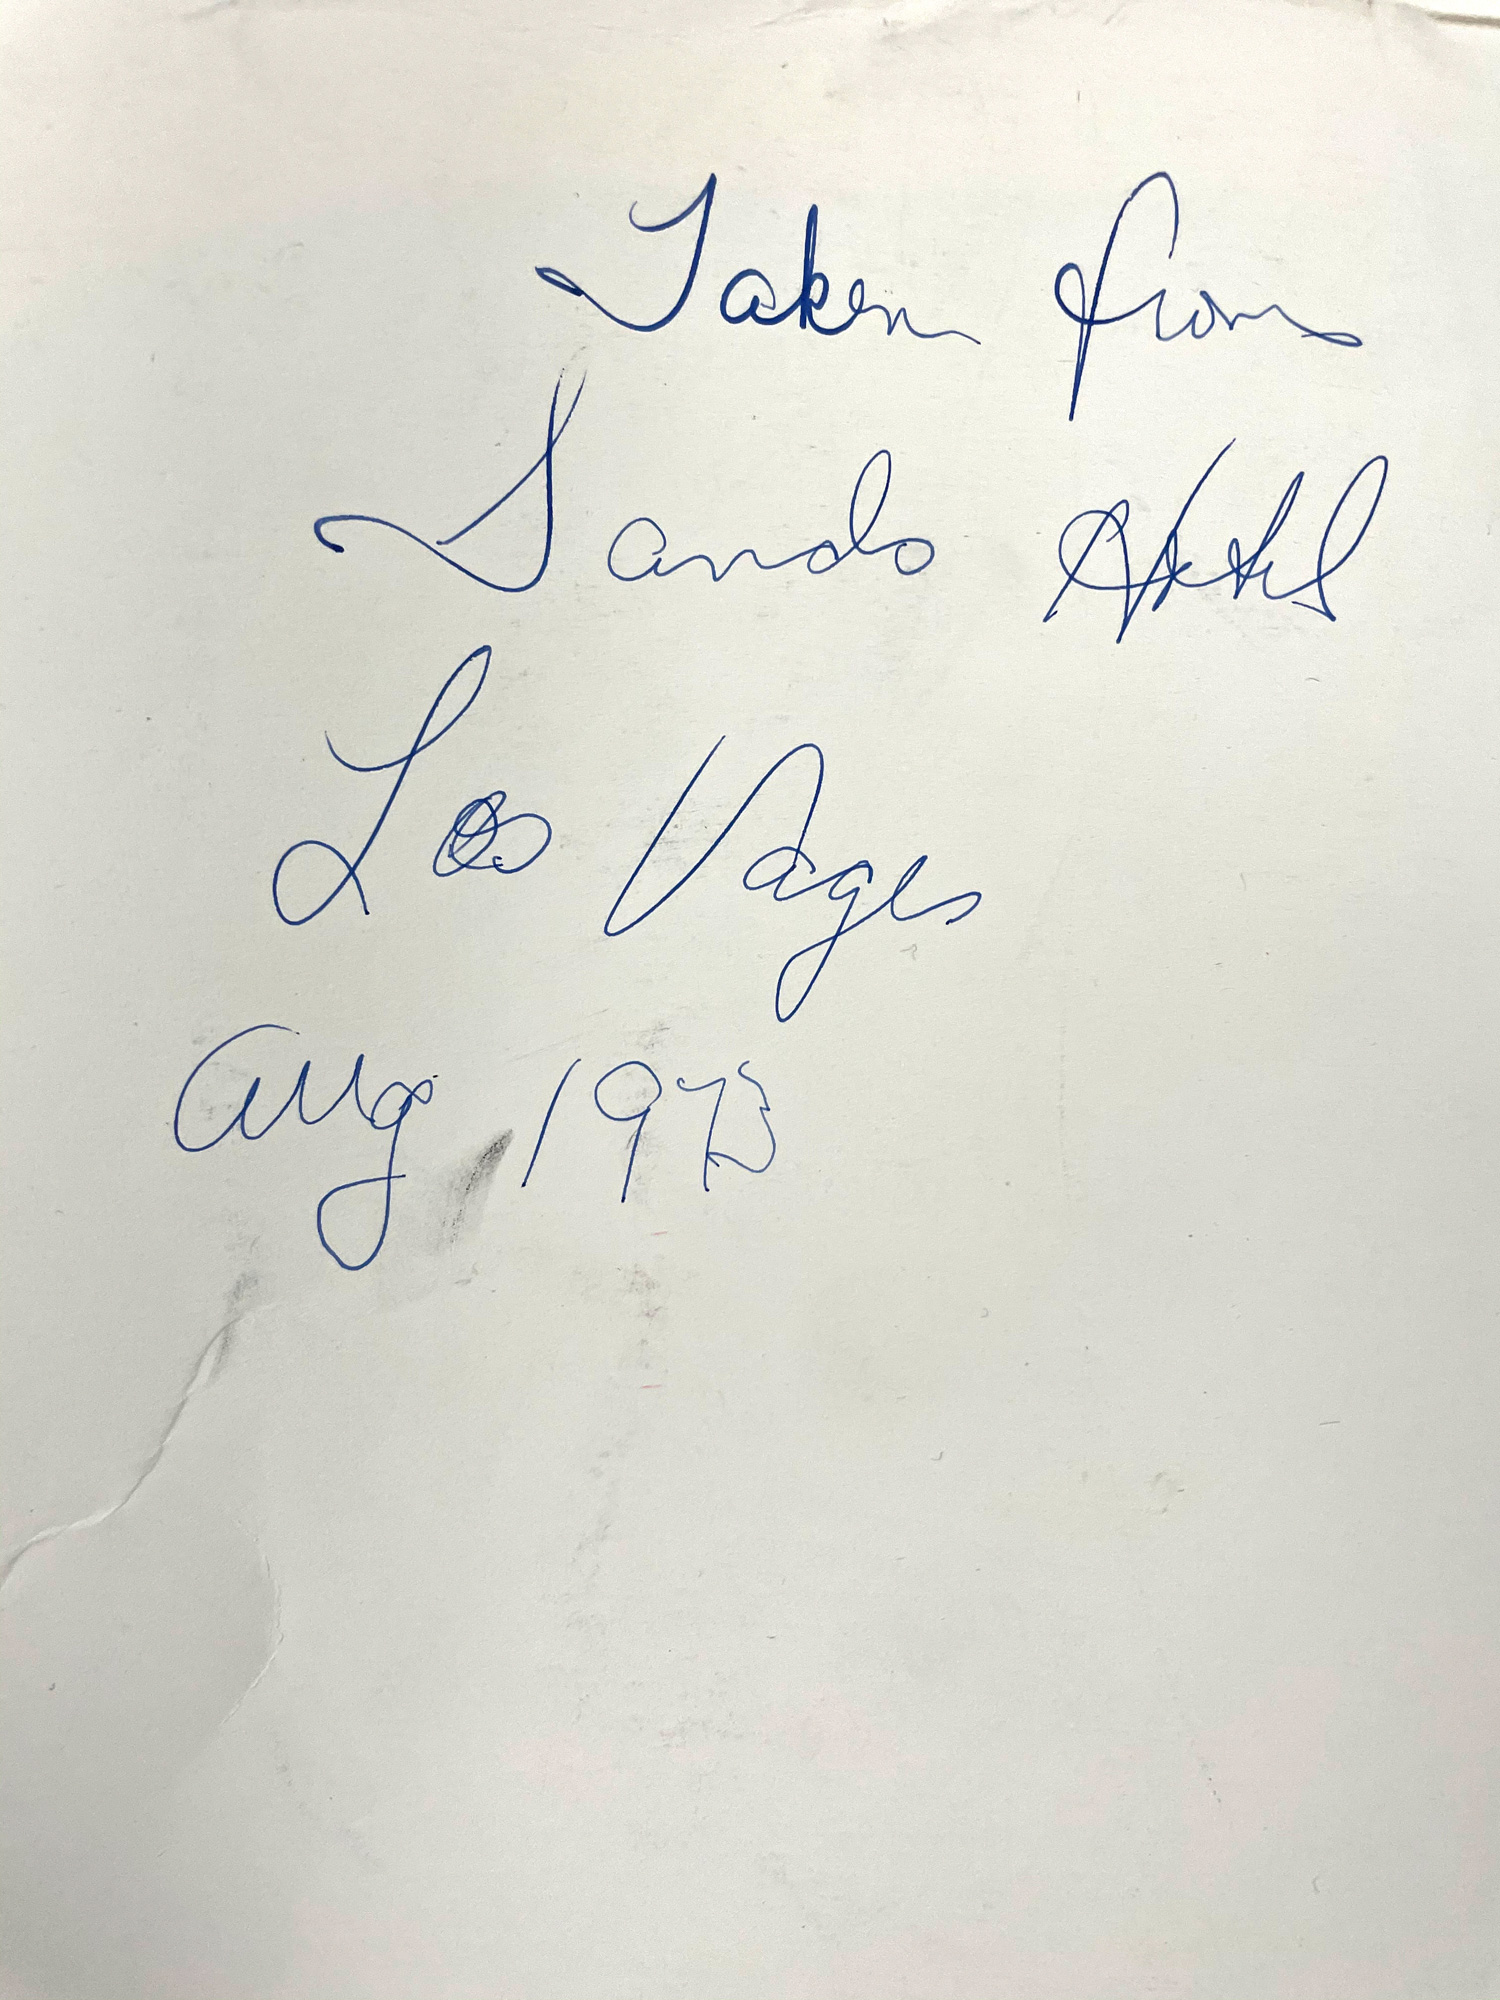 Taken from
Sands Hotel
Los Vages
Aug 1973